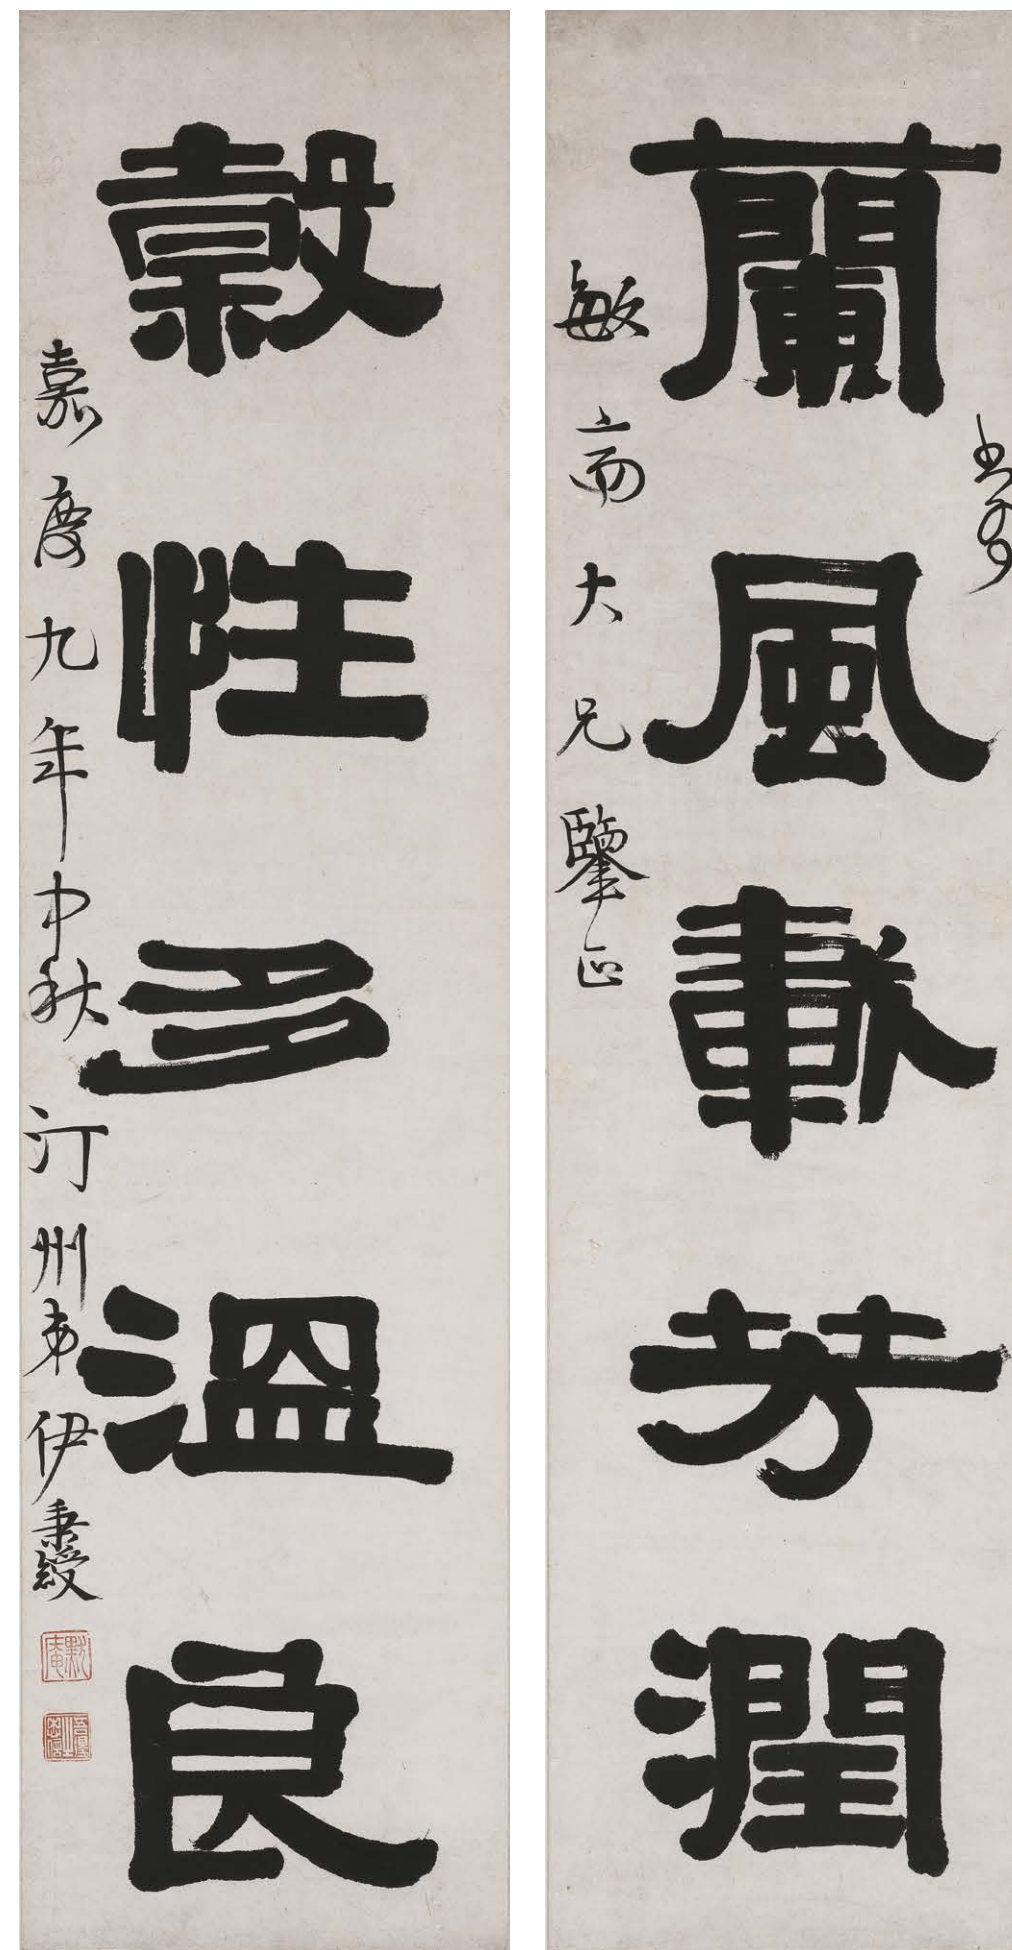 書奉
蘭風載芳潤
敏齋大兄鑒正
穀性多溫良
嘉慶九年中秋汀州弟伊秉綬
默庵